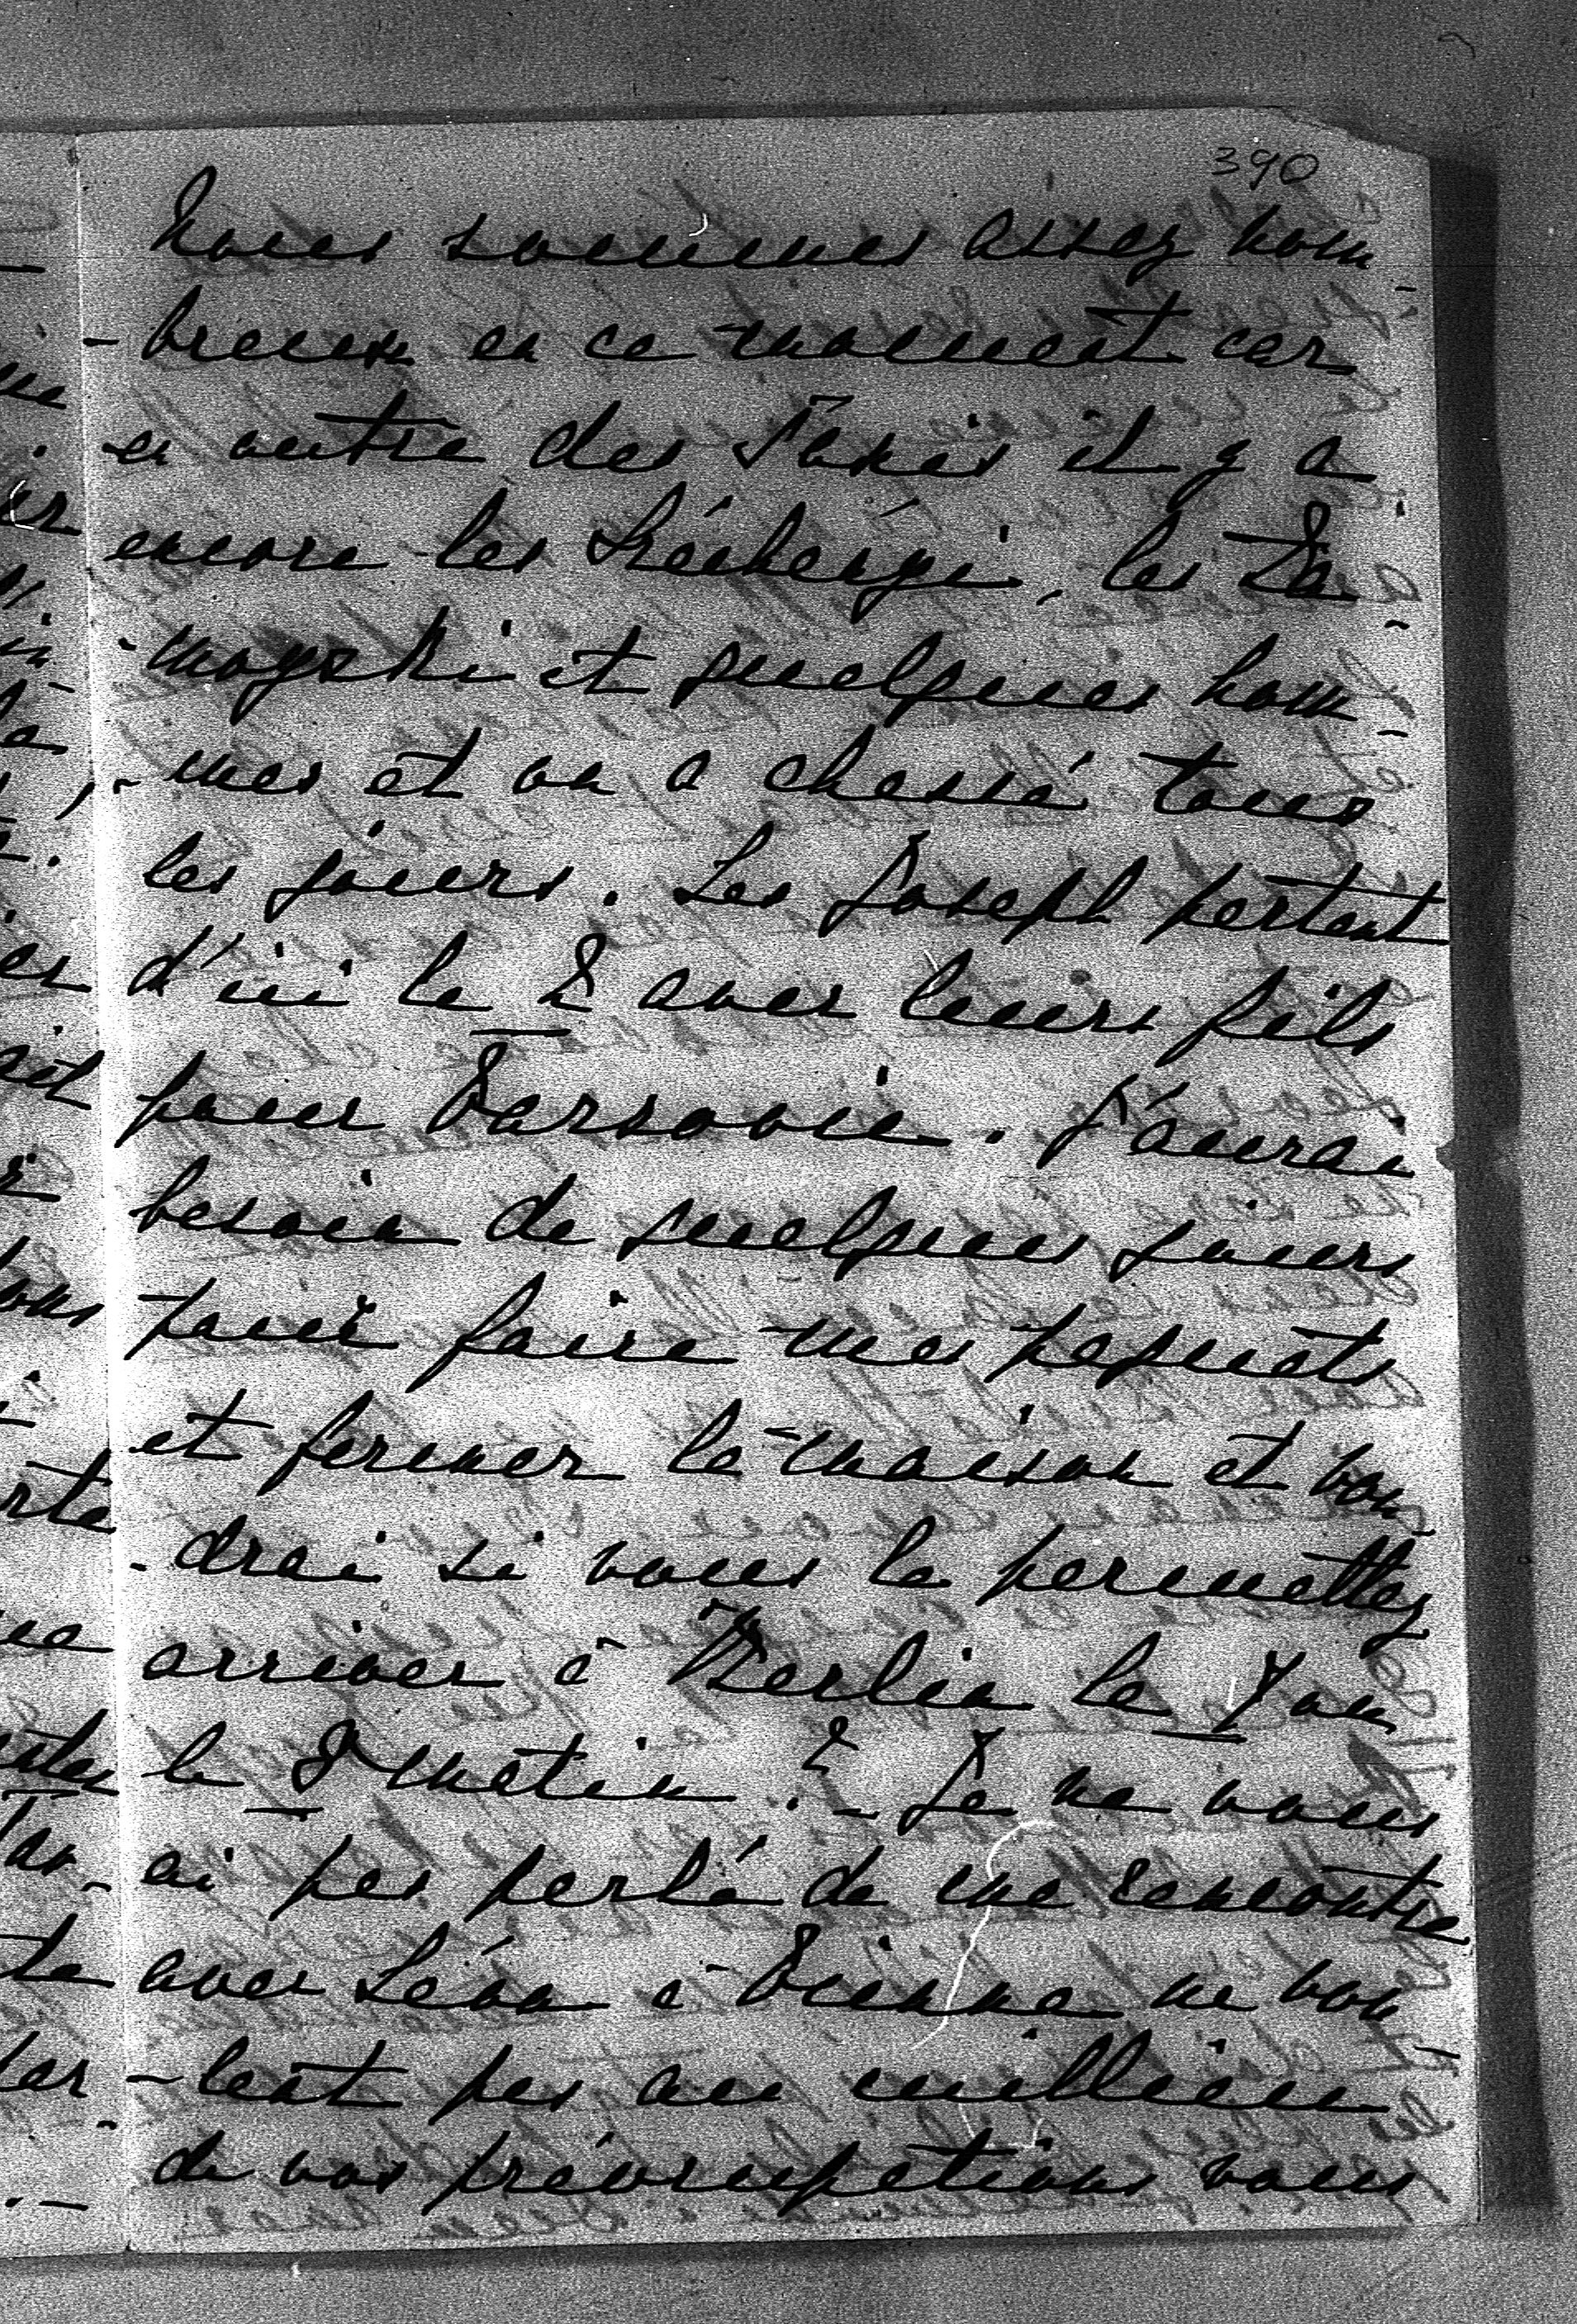 390
Nous sommes assez nom-
-breux en ce moment car
en outre des Taxis il y a
encore les Széchenyi, les Za-
-moyski et quelques hom-
-mes et on a chassé tous
les jours. Les Joseph partent
d'ici le 2 avec leurs fils
pour Varsovie. J'aurai
besoin de quelques jours
pour faire mes paquets
et fermer la maison et vou-
-drai si vous le permettez
arriver à Berlin le 7 ou
le 8 matin. _ Je ne vous
ai pas parlé de ma rencontre
avec Léon à Vienne ne vou-
-lant pas au millieu
de vos préocupations vous